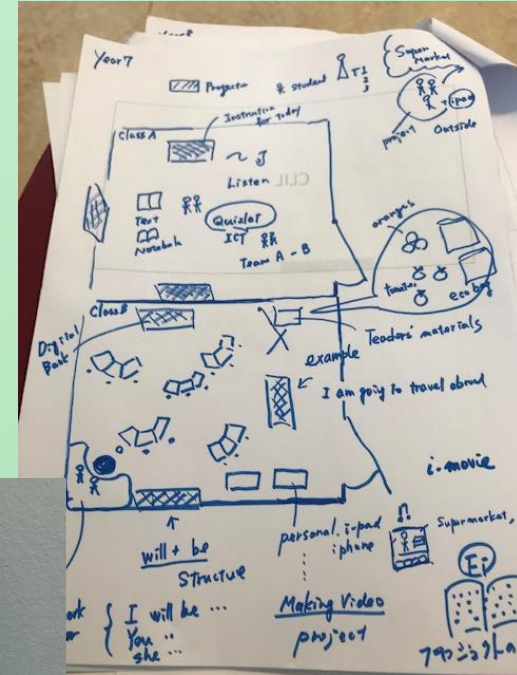 Year 7
student
T 1 2 3
Super Market
project
+ ipad
Outside
Class A
Instruction for today
Listen
CLIL
Text
Notebook
Quizlet
ICT
Team A - B
oranges
eco bag
Class B
Digital Book
Teachers' materials
example
I am going to travel abroad
i-movie
will + be
Structure
personal. i-pad
iphone
Supermarket,
I will be ...
You "
she ...
Making Video
project